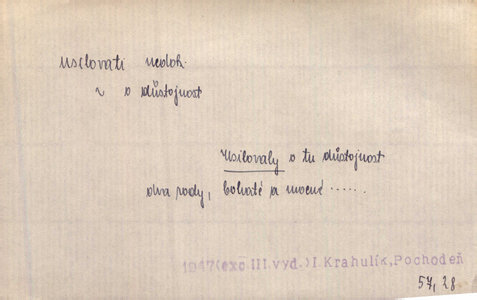 usilovati nedok.
~ o důstojnost
Usilovaly o tu důstojnost
dva rody, bohaté a mocné ......
1947(exc III.vyd.)I Krahulík,Pochodeň
57, 28